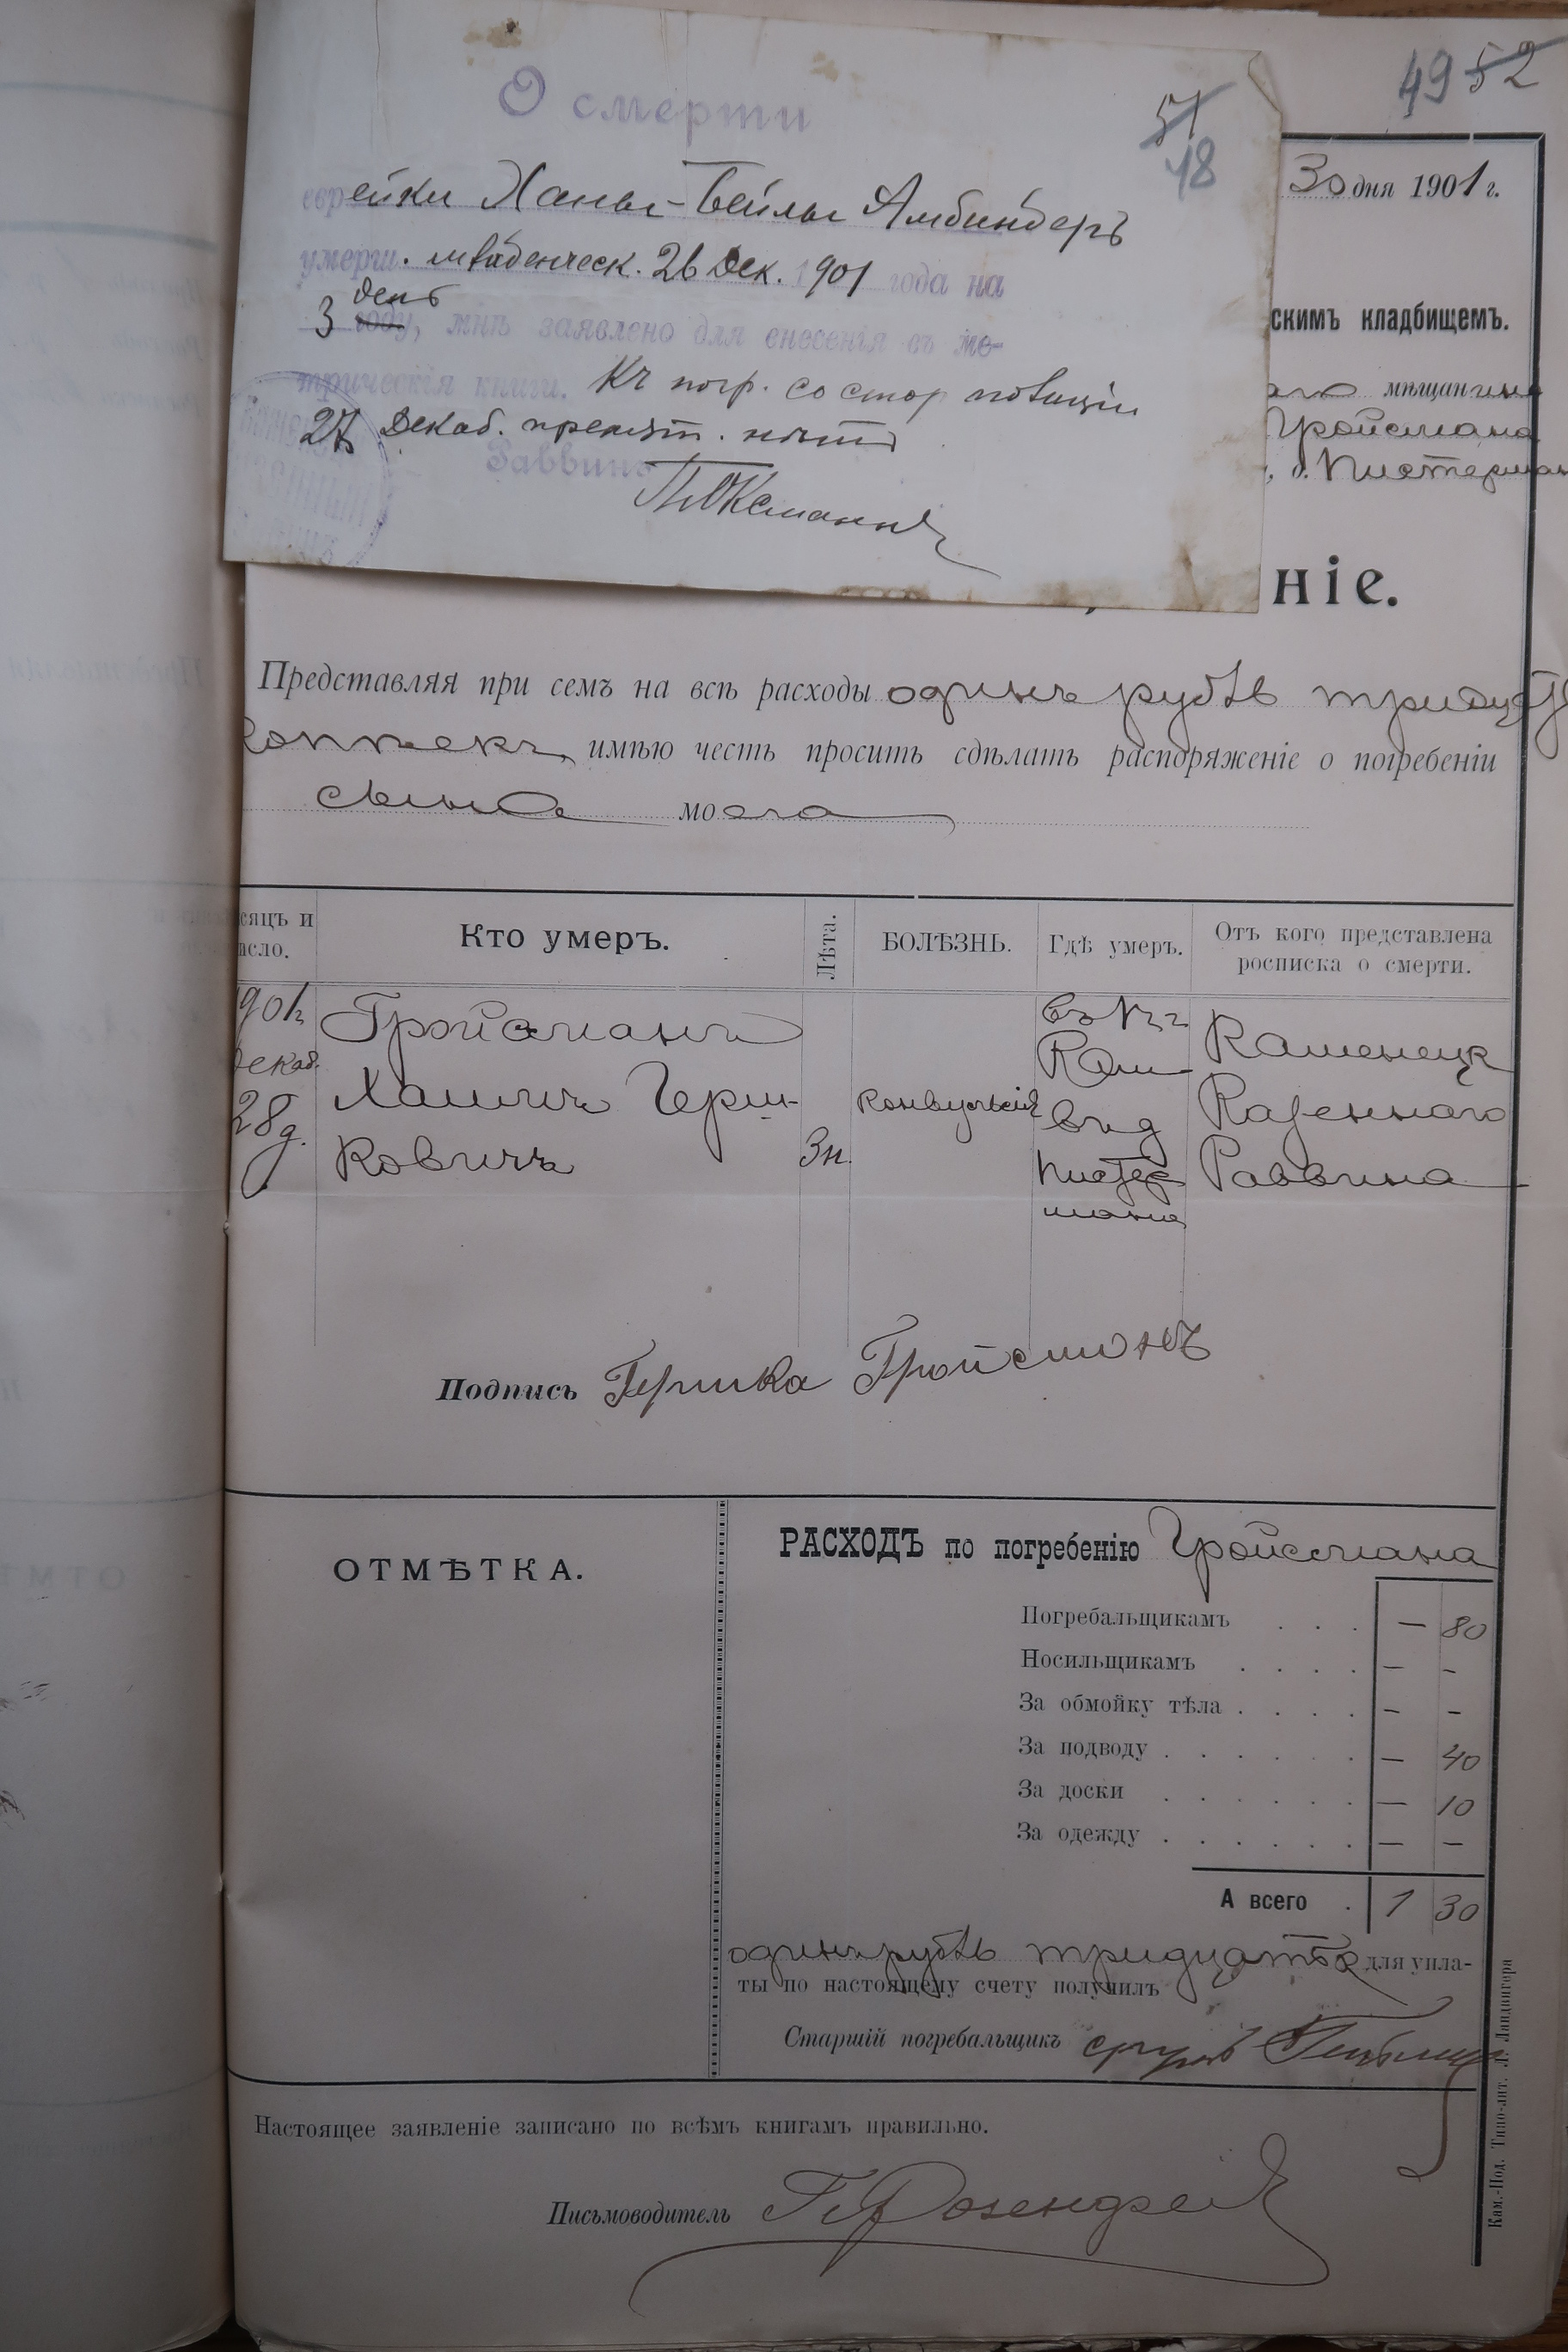 49 52
О смерти
51
48
еврейки Ханы-Бейлы Амбиндеръ
умерш. младенческ. 26 Дек. 1901 года на
3 день году, мнѣ заявлено для внесенія въ ме-
трическія книги. Къ погр. со стор полиціи
27 Декаб. препят. нѣтъ
Раввинъ
30 дня 1901 г.
скимъ кладбищемъ.
аго мѣщанина
Гройсмана
д. Пистермана
ніе.
Представляя при семъ на всѣ расходы одинъ рубль тридцать
копѣекъ имѣю честь просить сдѣлать распоряженіе о погребеніи
сына моего
сяцъ и
исло.
Кто умеръ.
Лѣта.
БОЛѢЗНЬ.
Гдѣ умеръ.
Отъ кого представлена
росписка о смерти.
901г
Декаб.
28 д.
Гройсманъ
Хаимъ Герш-
ковичъ
3 н.
Конвульсія
въ г.
Кам
въ д
Пистер
мана
Каменецк
Казеннаго
Раввина
Подпись Гершка Гройсманъ
ОТМѢТКА.
РАСХОДЪ по погребенію Гройсмана
Погребальщикамъ . . . — 80
Носильщикамъ . . . . — -
За обмойку тѣла . . . . — -
За подводу . . . . . . — 40
За доски . . . . . . — 10
За одежду . . . . . . — —
А всего . 1 30
одинъ рубль тридцать к для упла-
ты по настоящему счету получилъ
Старшій погребальщикъ
Настоящее заявленіе записано по всѣмъ книгамъ правильно.
Письмоводитель
Кам.-Под. Типо-лит. Л. Ландвигера